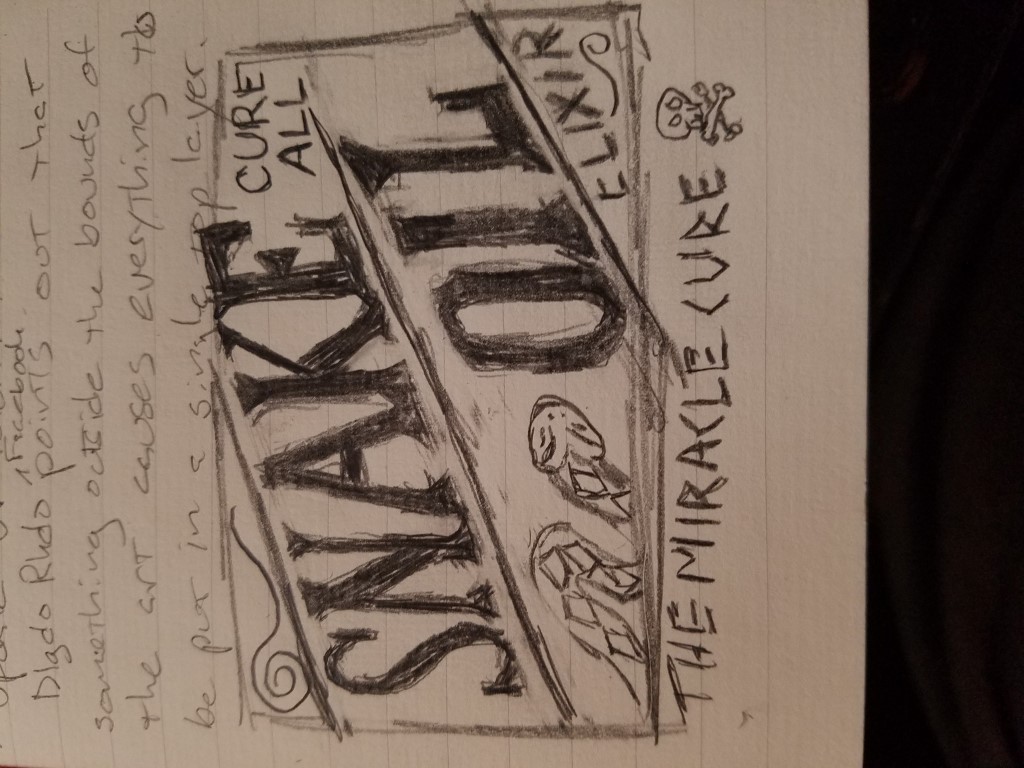 Facebook
Digdo Rhdo points out that
something outside the bounds of
the art causes everything to
be put in a single top layer.
SNAKE
CURE
ALL
OIL
ELIXIR
THE MIRACLE CURE